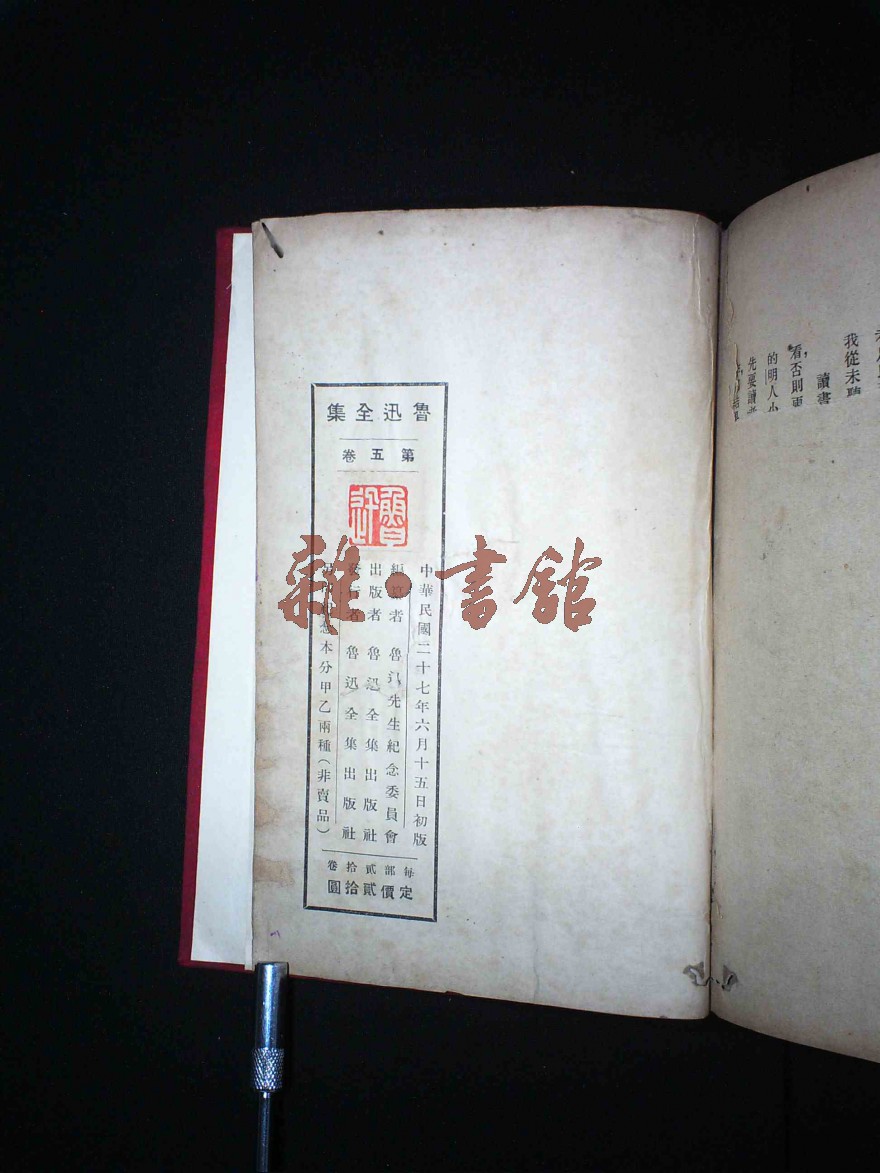 魯迅全集
第五卷
魯迅
中華民國二十七年六月十五日初版
編纂者 魯迅先生紀念委員會
出版者 魯迅全集出版社
發行者 魯迅全集出版社
念本分甲乙兩種(非賣品)
每部貳拾卷
定價貳拾圓
雜·書館
我從未
讀書
看，否則更
的明人小
先要讀